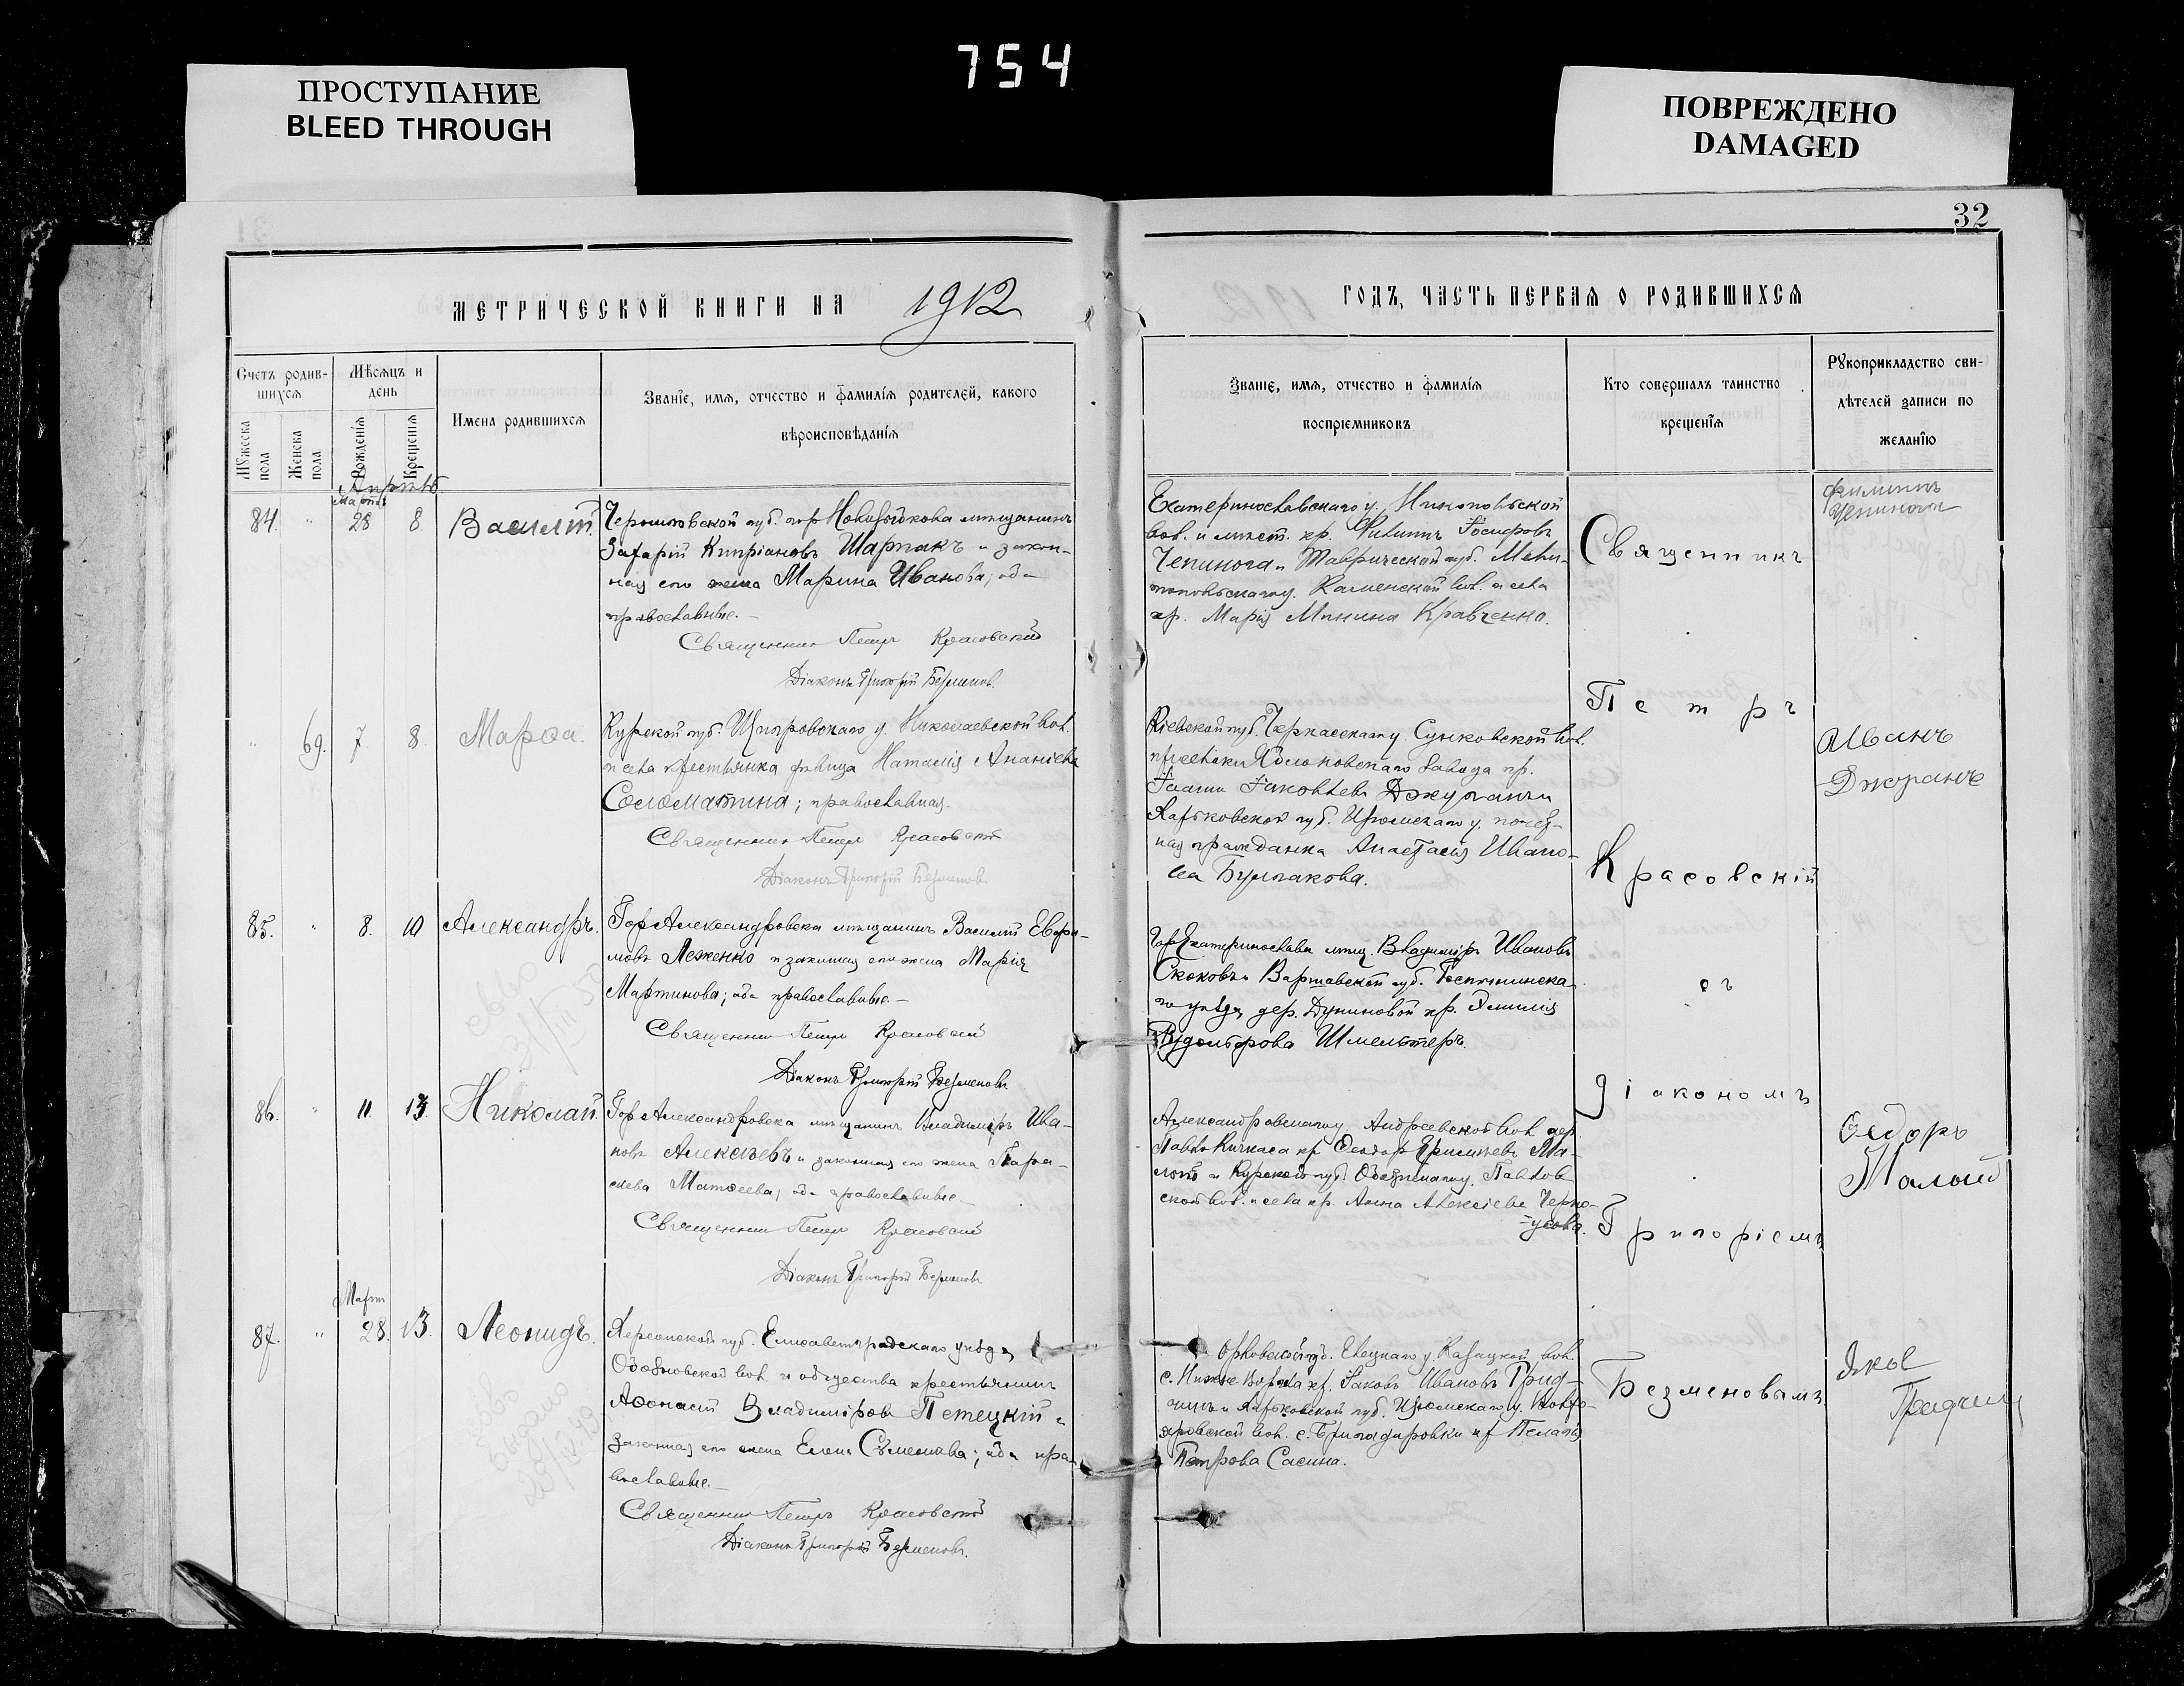 754
ПРОСТУПАНИЕ
BLEED THROUGH
ПОВРЕЖДЕНО
DAMAGED
32
МЕТРИЧЕСКОЙ КНИГИ НА 1912
ГОДЪ, ЧАСТЬ ПЕРВАЯ О РОДИВШИХСЯ
Счетъ родив-
шихся
Мужеска пола
Женска пола
Мѣсяцъ и
день
Рожденія
Крещенія
Имена родившихся
Званіе, имя, отчество и фамилія родителей, какого
вѣроисповѣданія
Званіе, имя, отчество и фамилія
воспріемниковъ
Кто совершалъ таинство
крещенія
Рукоприкладство сви-
дѣтелей записи по
желанію
Апрѣль
Марта
84. " 28 8 Василій.
Черниговской губ. гор Новозыбкова мѣщанинъ
Захарій Кипріановъ Шарпакъ и закон-
ная его жена Марина Иванова; оба
православные.
Священникъ Петръ Красовскій
Діаконъ Григорій Безменовъ.
Екатеринославскаго у. Никопольской
вол. и мѣст. кр. Филиппъ Іосифовъ
Чепинога и Таврической губ. Мели-
топольскаго у. Каменской вол. и села
кр. Марія Минина Кравченко.
Филиппъ
Чепинога
" 69. 7 8 Марѳа.
Курской губ. Щигровскаго у. Николаевской вол.
и села крестьянка дѣвица Наталія Ананіева
Соломатина; православная.
Священникъ Петръ Красовскій
Діаконъ Григорій Безменовъ.
Кіевской губ. Черкасскаго у. Сунковской вол.
кр.
Іоаннъ Іаковлевъ и
Харьковской губ. Изюмскаго у. почет-
ная гражданка Анастасія Ивано-
ва Булгакова.
Иванъ
85. " 8. 10 Александръ.
Гор Александровска мѣщанинъ Василій Евфи-
мовъ Леженко и законная его жена Марія
Мартинова; оба православные.
Священникъ Петръ Красовскій
Діаконъ Григорій Безменовъ
Гор Екатеринослава мѣщ. Владиміръ Ивановъ
Скоковъ и Варшавской губ.
го уѣзда дер. кр. Эмилія
Рудольфова Шмельтеръ.
86. " 11 13 Николай.
Гор Александровска мѣщанинъ Владиміръ Ива-
новъ Алексѣевъ и законная его жена Пара-
скева Матѳеева; оба православные.
Священникъ Петръ Красовскій
Діаконъ Григорій Безменовъ
Александровскаго у. Андреевской вол. дер.
Павло Кичкаса кр Ѳеодоръ Григорьевъ Ма-
лый и Курской губ. Обоянскаго у. Павлов-
ской вол. и села кр. Анна Алексіева Черно-
усова.
Ѳедоръ
Малый
Март
87. " 28. 13. Леонидъ.
Херсонской губ. Елисаветградскаго уѣзда
вол. и общества крестьянинъ
Аѳонасій Владиміровъ Петецкій и
законная его жена Елена Сѵмеонова; оба пра-
вославные.
Священникъ Петръ Красовскій
Діаконъ Григорій Безменовъ.
Орловской губ. Елецкаго у. Казацкой вол.
с. Нижне Воргла кр. Іаковъ Ивановъ Грид-
чинъ и Харьковской губ. Изюмскаго у.
вол. с. Бригадировки кр Пелагія
Петрова Сасина.
Яков
Гридчин
Священникъ
Петръ
Красовскій
съ
діакономъ
Григоріемъ
Безменовымъ